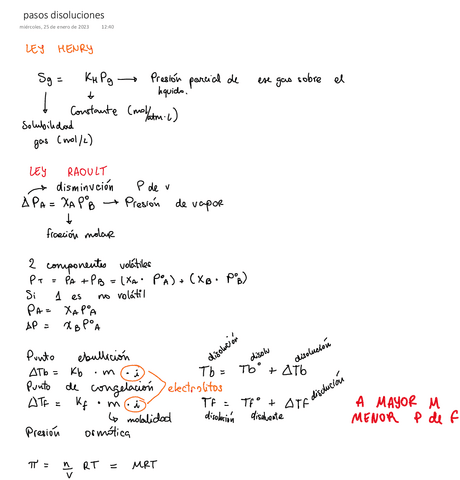 pasos disoluciones
miércoles, 25 de enero de 2023 12:40
LEY HENRY
Sg = KH Pg → Presión parcial de ese gas sobre el líquido.
Constante (mol/atm·L)
Solubilidad
gas (mol/L)
LEY RAOULT
disminución P de v
ΔPA = XA P°B → Presión de vapor
fracción molar
2 componentes volátiles
PT = PA + PB = (XA · P°A) + (XB · P°B)
Si 1 es no volátil
PA = XA P°A
ΔP = XB P°A
Punto ebullición
ΔTb = Kb · m · i
disolución disolv disolución
Tb = Tb° + ΔTb
Punto de congelación
electrolitos
ΔTF = Kf · m · i
molalidad
TF = TF° + ΔTF disolución
disolución disolvente
A MAYOR M
MENOR P de F
Presión osmótica
π = n/V RT = MRT